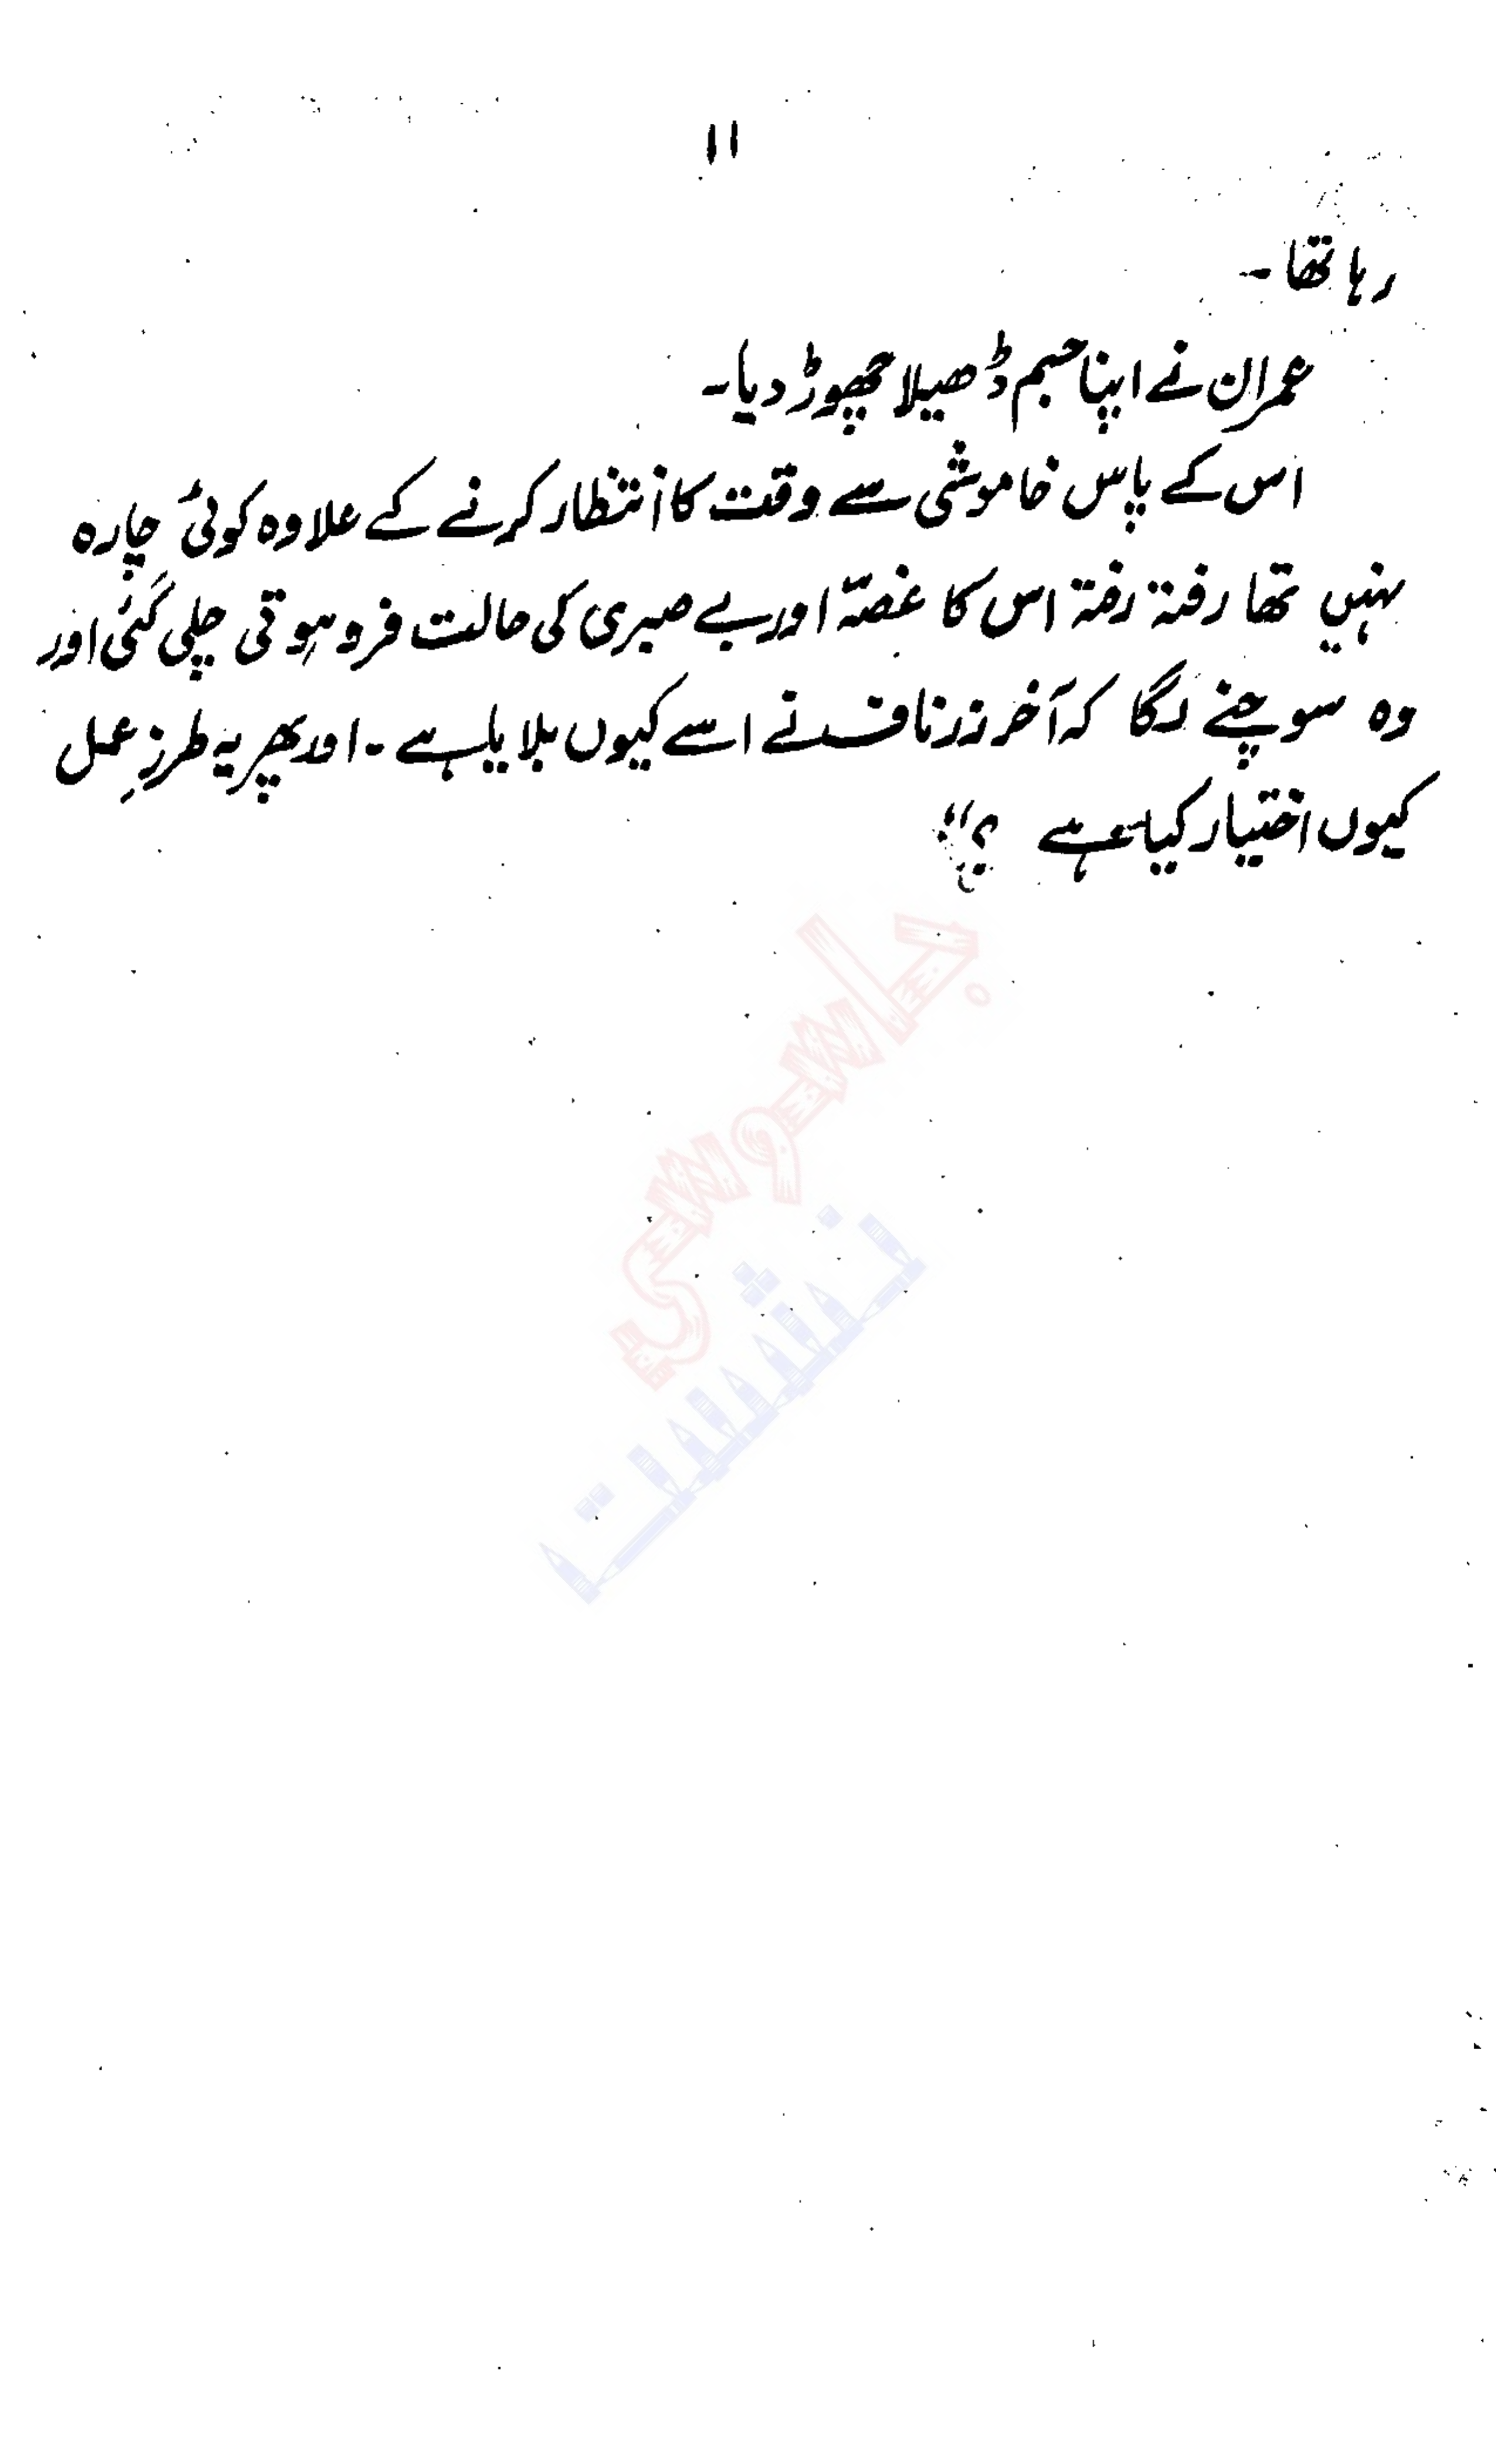 ۱۱
رہا تھا۔
عمران نے اپنا جسم ڈھیلا چھوڑ دیا۔
اس کے پاس خاموشی سے وقت کا انتظار کرنے کے علاوہ کوئی چارہ
نہیں تھا رفتہ رفتہ اس کا غصّہ اور بے صبری کی حالت فرو ہوتی چلی گئی اور
وہ سوچنے لگا کہ آخر نے اسے کیوں بلایا ہے۔ اور پھر یہ طرزِ عمل
کیوں اختیار کیا ہے ؟"
جاسوسی
نشست